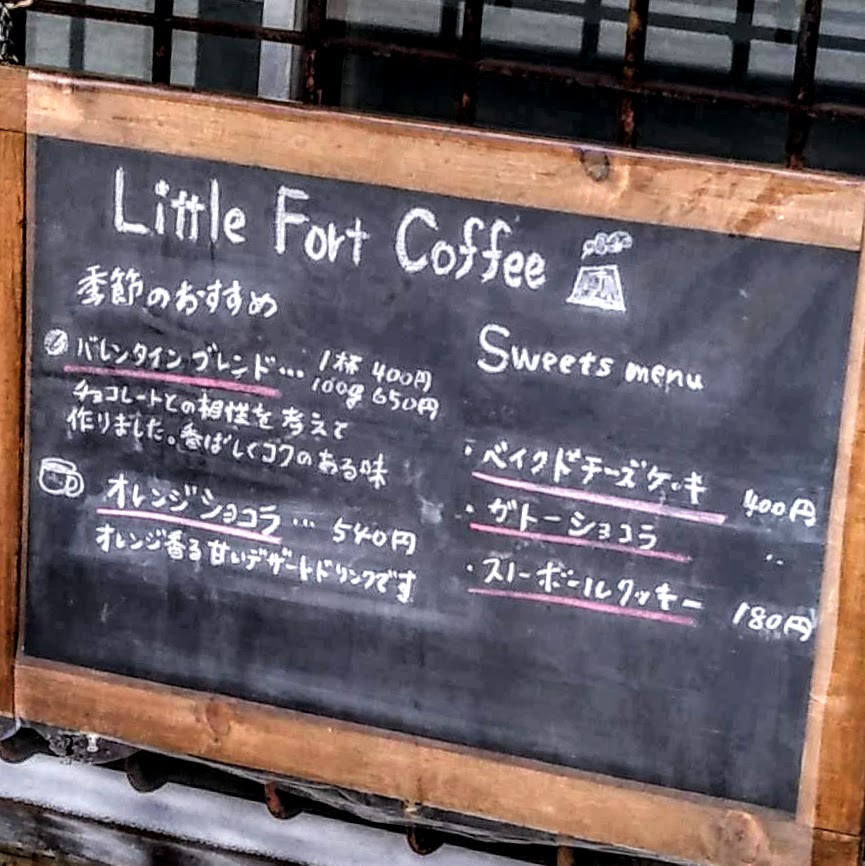 Little Fort Coffee
季節のおすすめ
バレンタインブレンド… 1杯 400円
100g 650円
チョコレートとの相性を考えて
作りました。香ばしくコクのある味
オレンジショコラ … 540円
オレンジ香る甘いデザートドリンクです
Sweets menu
・ベイクドチーズケーキ 400円
・ガトーショコラ 〃
・スノーボールクッキー 180円